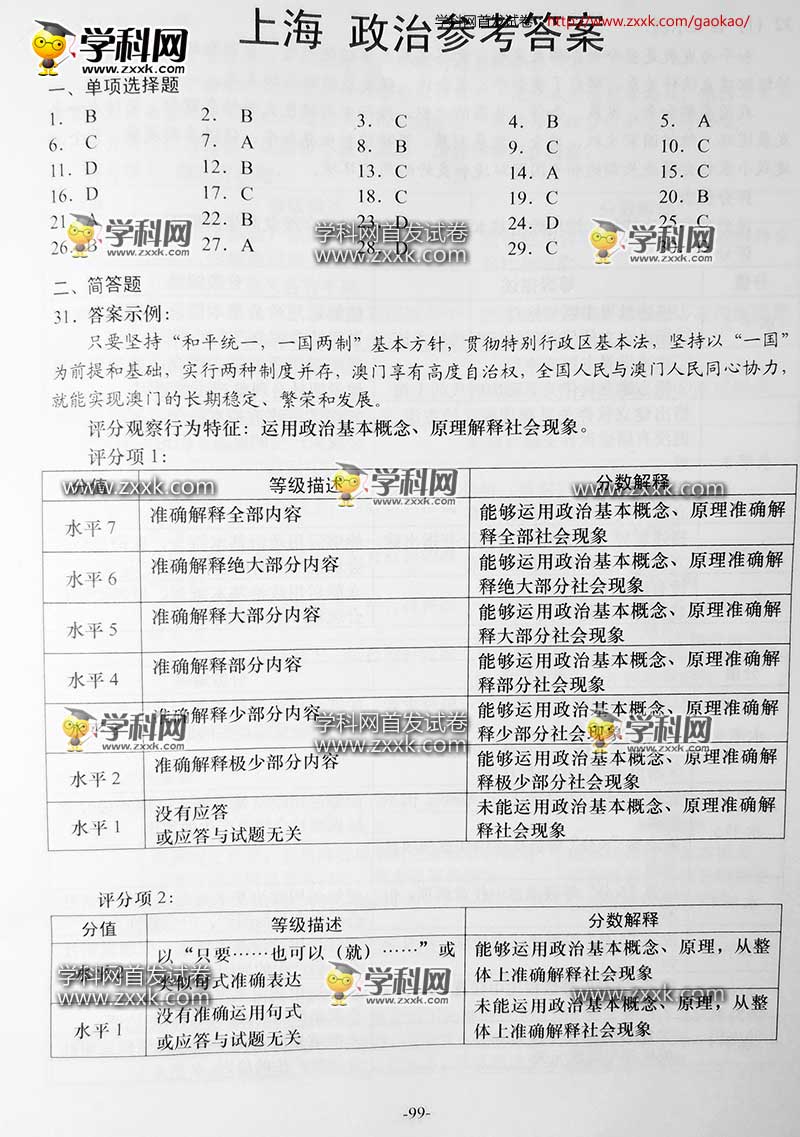 学科网首发试卷：http://www.zxxk.com/gaokao/
学科网
zxxk.com
上海 政治参考答案
一、单项选择题
1. B 2. B 3. C 4. B 5. A
6. C 7. A 8. B 9. C 10. C
11. D 12. B 13. C 14. A 15. C
16. D 17. C 18. C 19. C 20. B
21. A 22. B 23. D 24. D 25. C
26. B 27. A 28. D 29. C
学科网
www.zxxk.com
学科网首发试卷
www.zxxk.com
学科网
www.zxxk.com
二、简答题
31. 答案示例：
只要坚持“和平统一，一国两制”基本方针，贯彻特别行政区基本法，坚持以“一国”
为前提和基础，实行两种制度并存，澳门享有高度自治权，全国人民与澳门人民同心协力，
就能实现澳门的长期稳定、繁荣和发展。
评分观察行为特征：运用政治基本概念、原理解释社会现象。
评分项 1：
分值 等级描述 分数解释
www.zxxk.com
学科网
www.zxxk.com
www.zxxk.com
水平 7 准确解释全部内容 能够运用政治基本概念、原理准确解
释全部社会现象
水平 6 准确解释绝大部分内容 能够运用政治基本概念、原理准确解
释绝大部分社会现象
水平 5 准确解释大部分内容 能够运用政治基本概念、原理准确解
释大部分社会现象
水平 4 准确解释部分内容 能够运用政治基本概念、原理准确解
释部分社会现象
准确解释少部分内容 能够运用政治基本概念、原理准确解
释少部分社会现象
学科网
www.zxxk.com
学科网首发试卷
www.zxxk.com
学科网
www.zxxk.com
水平 2 准确解释极少部分内容 能够运用政治基本概念、原理准确解
释极少部分社会现象
水平 1 没有应答 未能运用政治基本概念、原理准确解
或应答与试题无关 释社会现象
评分项 2：
分值 等级描述 分数解释
以“只要……也可以（就）……”或 能够运用政治基本概念、原理，从整
类似句式准确表达 体上准确解释社会现象
学科网首发试卷
www.zxxk.com
学科网
www.zxxk.com
学科网首发试卷
www.zxxk.com
水平 1 没有准确运用句式 未能运用政治基本概念、原理，从整
或应答与试题无关 体上准确解释社会现象
-99-